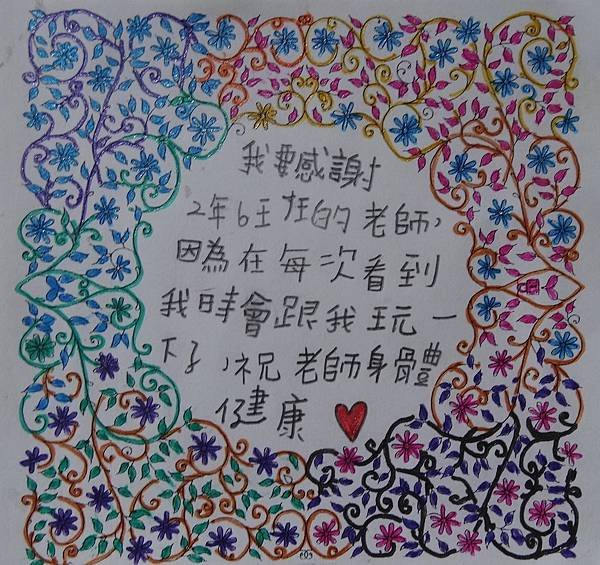 我要感謝
2年6班的老師,
因為在每次看到
我時會跟我玩一
下了,祝老師身體
健康